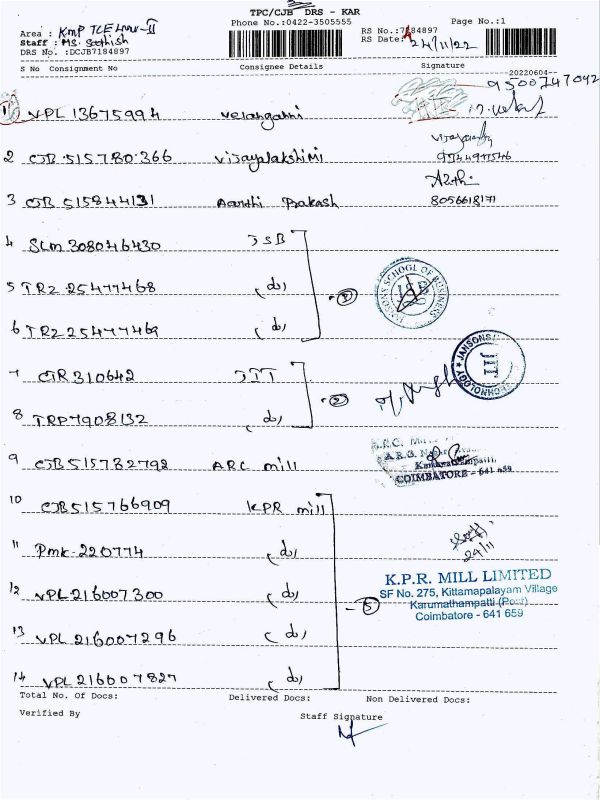 TPC/CJB DRS - KAR
Phone No.:0422-3505555
Page No.:1
Area : KMP TCE II
Staff : MS. Sathish
DRS No. :DCJB7184897
RS No.:7184897
RS Date: 24/11/22
S No Consignment No Consignee Details Signature
20220604--
9500747042
1 VPL 13675994 velanganni
2 CJB 515780366 Vijayalakshimi
3 CJB 515844131 Aarthi Prakash 8056618171
4 SLM 308046430 JSB
5 TRZ 25477468 (do)
6 TRZ 25477469 (do)
JANSONS SCHOOL OF BUSINESS
JSB
7 CTR 310642 JIT
8 TRP 7908132 (do)
2
JIT
TECHNOLOGY
9 CJB515782792 ARC mill
COIMBATORE - 641 659
10 CJB515766909 KPR mill
11 PMK-220774 (do)
24/11
12 VPL 216007300 (do)
5
K.P.R. MILL LIMITED
SF No. 275, Kittamapalayam Village
Karumathampatti (Post)
Coimbatore - 641 659
13 VPL 216007296 (do)
14 VPL 216007827 (do)
Total No. Of Docs: Delivered Docs: Non Delivered Docs:
Verified By Staff Signature